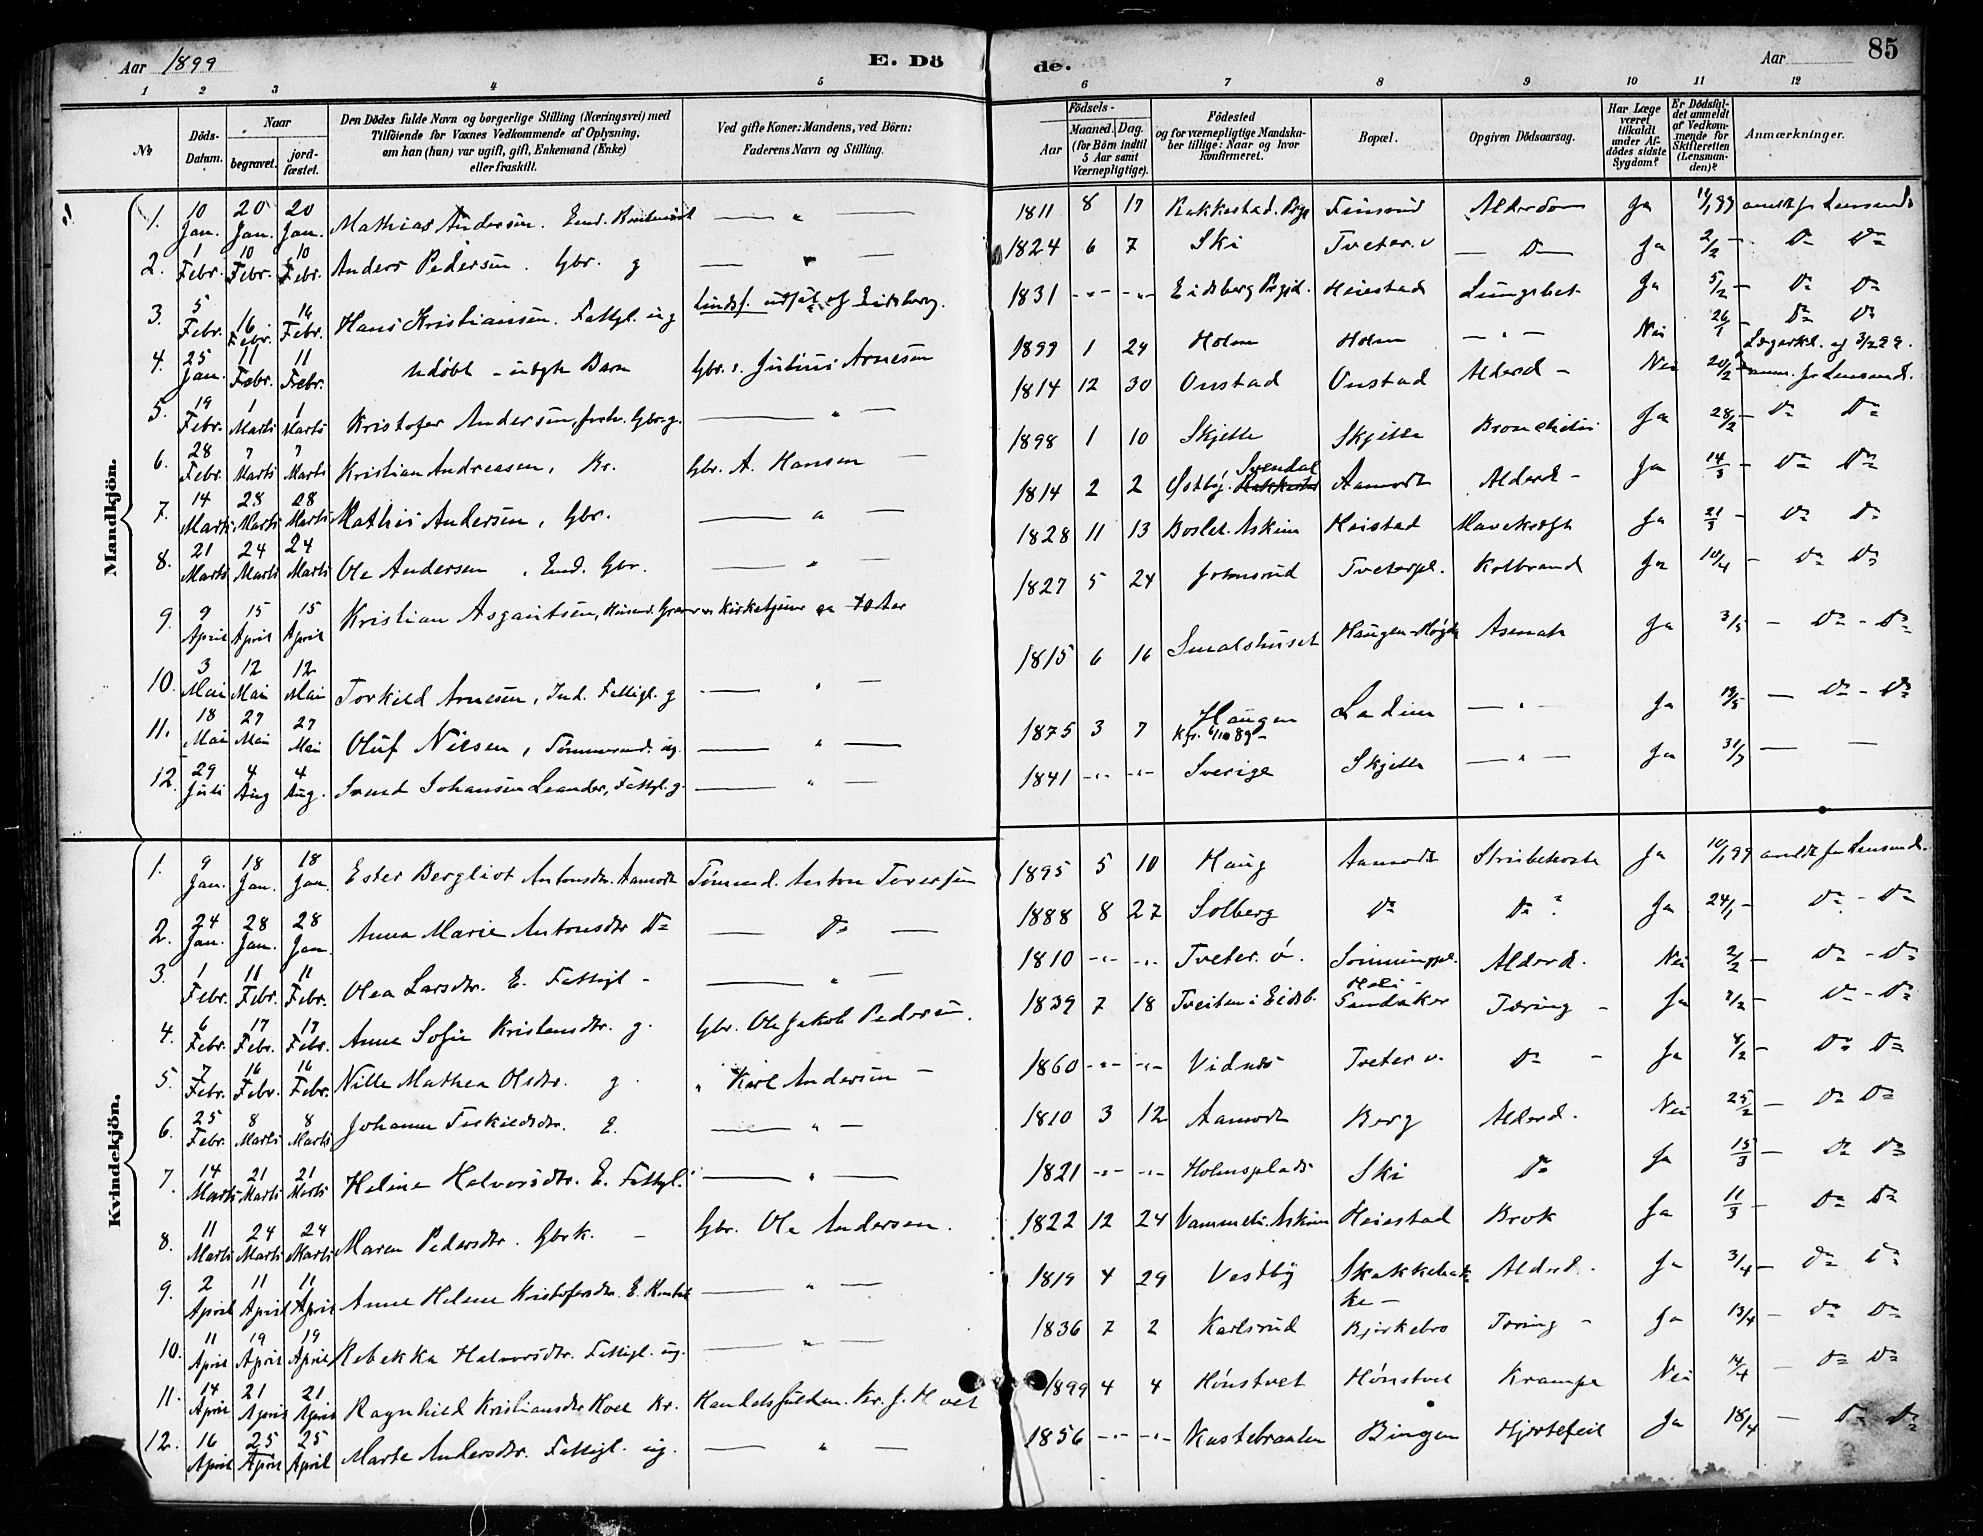 Aar 1899
E. Dö
de.
Aar
85
1 2 3 4 5 6 7 8 9 10 11 12
No
Döds-Datum.
Naar
begravet.
jord-fæstet.
Den Dödes fulde Navn og borgerlige Stilling (Næringsvei) med
Tilföiende for Voxnes Vedkommende af Oplysning,
om han (hun) var ugift, gift, Enkemand (Enke)
eller fraskilt.
Ved gifte Koner: Mandens, ved Börn:
Faderens Navn og Stilling.
Födsels-
Aar
Maaned. Dag.
(for Börn indtil
5 Aar samt
Værnepligtige).
Födested
og for værnepligtige Mandska-
ber tillige: Naar og hvor
konfirmeret.
Bopæl.
Opgiven Dödsaarsag.
Har Læge
været
tilkaldt
under Af-
dödes sidste
Sygdom?
Er Dödsfal-
det anmeldt
af Vedkom-
mende for
Skifteretten
(Lensman-
den)?
Anmærkninger.
Mandkjön.
1. 10 Jan. 20 Jan. 20 Jan. Mathias Andersen. Enk. — " — 1811 8 17 Rakkestad. Ja
2. 1 Febr. 10 Febr. 10 Febr. Anders Pedersen. Gbr. g — " — 1824 6 7 Ski Tveter. v — Do — Ja 2/2 — Do Do
3. 5 Febr. 16 Febr. 16 Febr. Hans Kristiansen. Fattgl. ug Eidsberg. 1831 -"- -"- Eidsberg Heiestad Ja 5/2 — Do Do
4. 25 Jan. 11 Febr. 11 Febr. Udöbt - Barn Gbr. s. Julius Arnesen 1899 1 24 Holm Holm — " — Nei 26/1 — Do Do
5. 19 Febr. 1 Marts 1 Marts Kristofer Andersen, Gbr. g. — " — 1814 12 30 Onstad Onstad Alderd — Nei 20/2 anm. for Lensmd.
6. 28 Febr. 7 Marts 7 Marts Kristian Andreasen, Br. Gbr. A. Hansen — 1898 1 10 Skjelle Skjelle Bronchitis Ja 28/2 — Do Do
7. 14 Marts 28 Marts 28 Marts Mathis Andersen, Gbr. — " — 1814 2 2 Østby. Svendal Aamodt Alderd — Ja 14/3 — Do Do
8. 21 Marts 24 Marts 24 Marts Ole Andersen, Enk. Gbr. — " — 1828 11 13 Askim Heistad Mavekræft Ja 21/3 — Do Do
9. 9 April 15 April 15 April Kristian Asgautsen, Kirketjener 1827 5 24 Johnsrud Tveterpl. Koldbrand Ja 10/4 — Do Do
10. 3 Mai 12 Mai 12 Mai Torkild Arnesen, Ind. Fattigl. g — " — 1815 6 16 Smalshuset Ja 3/5 — Do — Do
11. 18 Mai 27 Mai 27 Mai Oluf Nilsen, Tömmermd. ug. — " — 1875 3 7 Haugen — " — Ja 19/5 — Do — Do
12. 29 Juli 4 Aug 4 Aug. Svend Johansen Leander, Fattgl. g. — " — 1841 -"- -"- Sverige Skjelle — " — Ja 31/7 — —
Kvindekjön.
1. 9 Jan. 18 Jan. 18 Jan. Ester Bergliot Antonsdtr. Aamodt Tömmmd. Anton Toversen 1895 5 10 Haug Aamodt Strubehoste Ja 10/1 99 anmldt for Lensmd.
2. 24 Jan. 28 Jan. 28 Jan Anna Marie Antonsdtr Do — Do — 1888 8 27 Solberg Do Do ? Ja 24/1 — Do — Do
3. 1 Febr. 11 Febr. 11 Febr. Olea Larsdtr. E. Fattigl — — " — 1810 -"- -"- Tveter. ö. Alderd. Nei 2/2 — Do — Do
4. 6 Febr. 17 Febr. 17 Febr. Anne Sofie Kristensdtr. g. Gbr. Ole Jakob Pedersen. 1839 7 18 Tveiten i Eidsb. Sandaker Tæring — Ja 7/2 — Do — Do
5. 7 Febr. 16 Febr 16 Febr. Nille Mathea Olsdtr. g. " Karl Andersen — 1860 -"- -"- Vidnes Tveter v. Do — Ja 8/2 — Do Do
6. 25 Febr. 8 Marts 8 Marts Johanne Terkildsdtr. E. — " — 1810 3 12 Aamodt Berg Alderd. Nei 25/2 — Do Do
7. 14 Marts 21 Marts 21 Marts Helene Halvorsdtr. E. Fattgl. — " — 1821 -"- -"- Holmsplads Ski Do Ja 15/3 — Do Do
8. 11 Marts 24 Marts 24 Marts Maren Pedersdtr. Gbrk. — Gbr. Ole Andersen. 1822 12 24 Askim Heiestad Brok Ja 11/3 — Do Do
9. 2 April 11 April 11 April Anne Helene Kristofersdtr. E. — " — 1819 4 29 Vestby Alderd. Ja 3/4 — Do Do
10. 11 April 19 April 19 April Rebekka Halvorsdtr. Fattigl. ug. — " — 1836 7 2 Karlsrud Bjerkebro Tæring — Ja 13/4 — Do Do
11. 14 April 21 April 21 April Ragnhild Kristiansdtr Hoel Br. Handelsfuldm. Kr. J. Hoel 1899 4 4 Hönstvet Hönstvet Krampe Nei 14/4 — Do Do
12. 16 April 25 April 25 April Marte Andersdtr. Fattigl. ug. — " — 1856 -"- -"- Kastebraaten Bingen Hjertefeil Ja 18/4 — Do Do